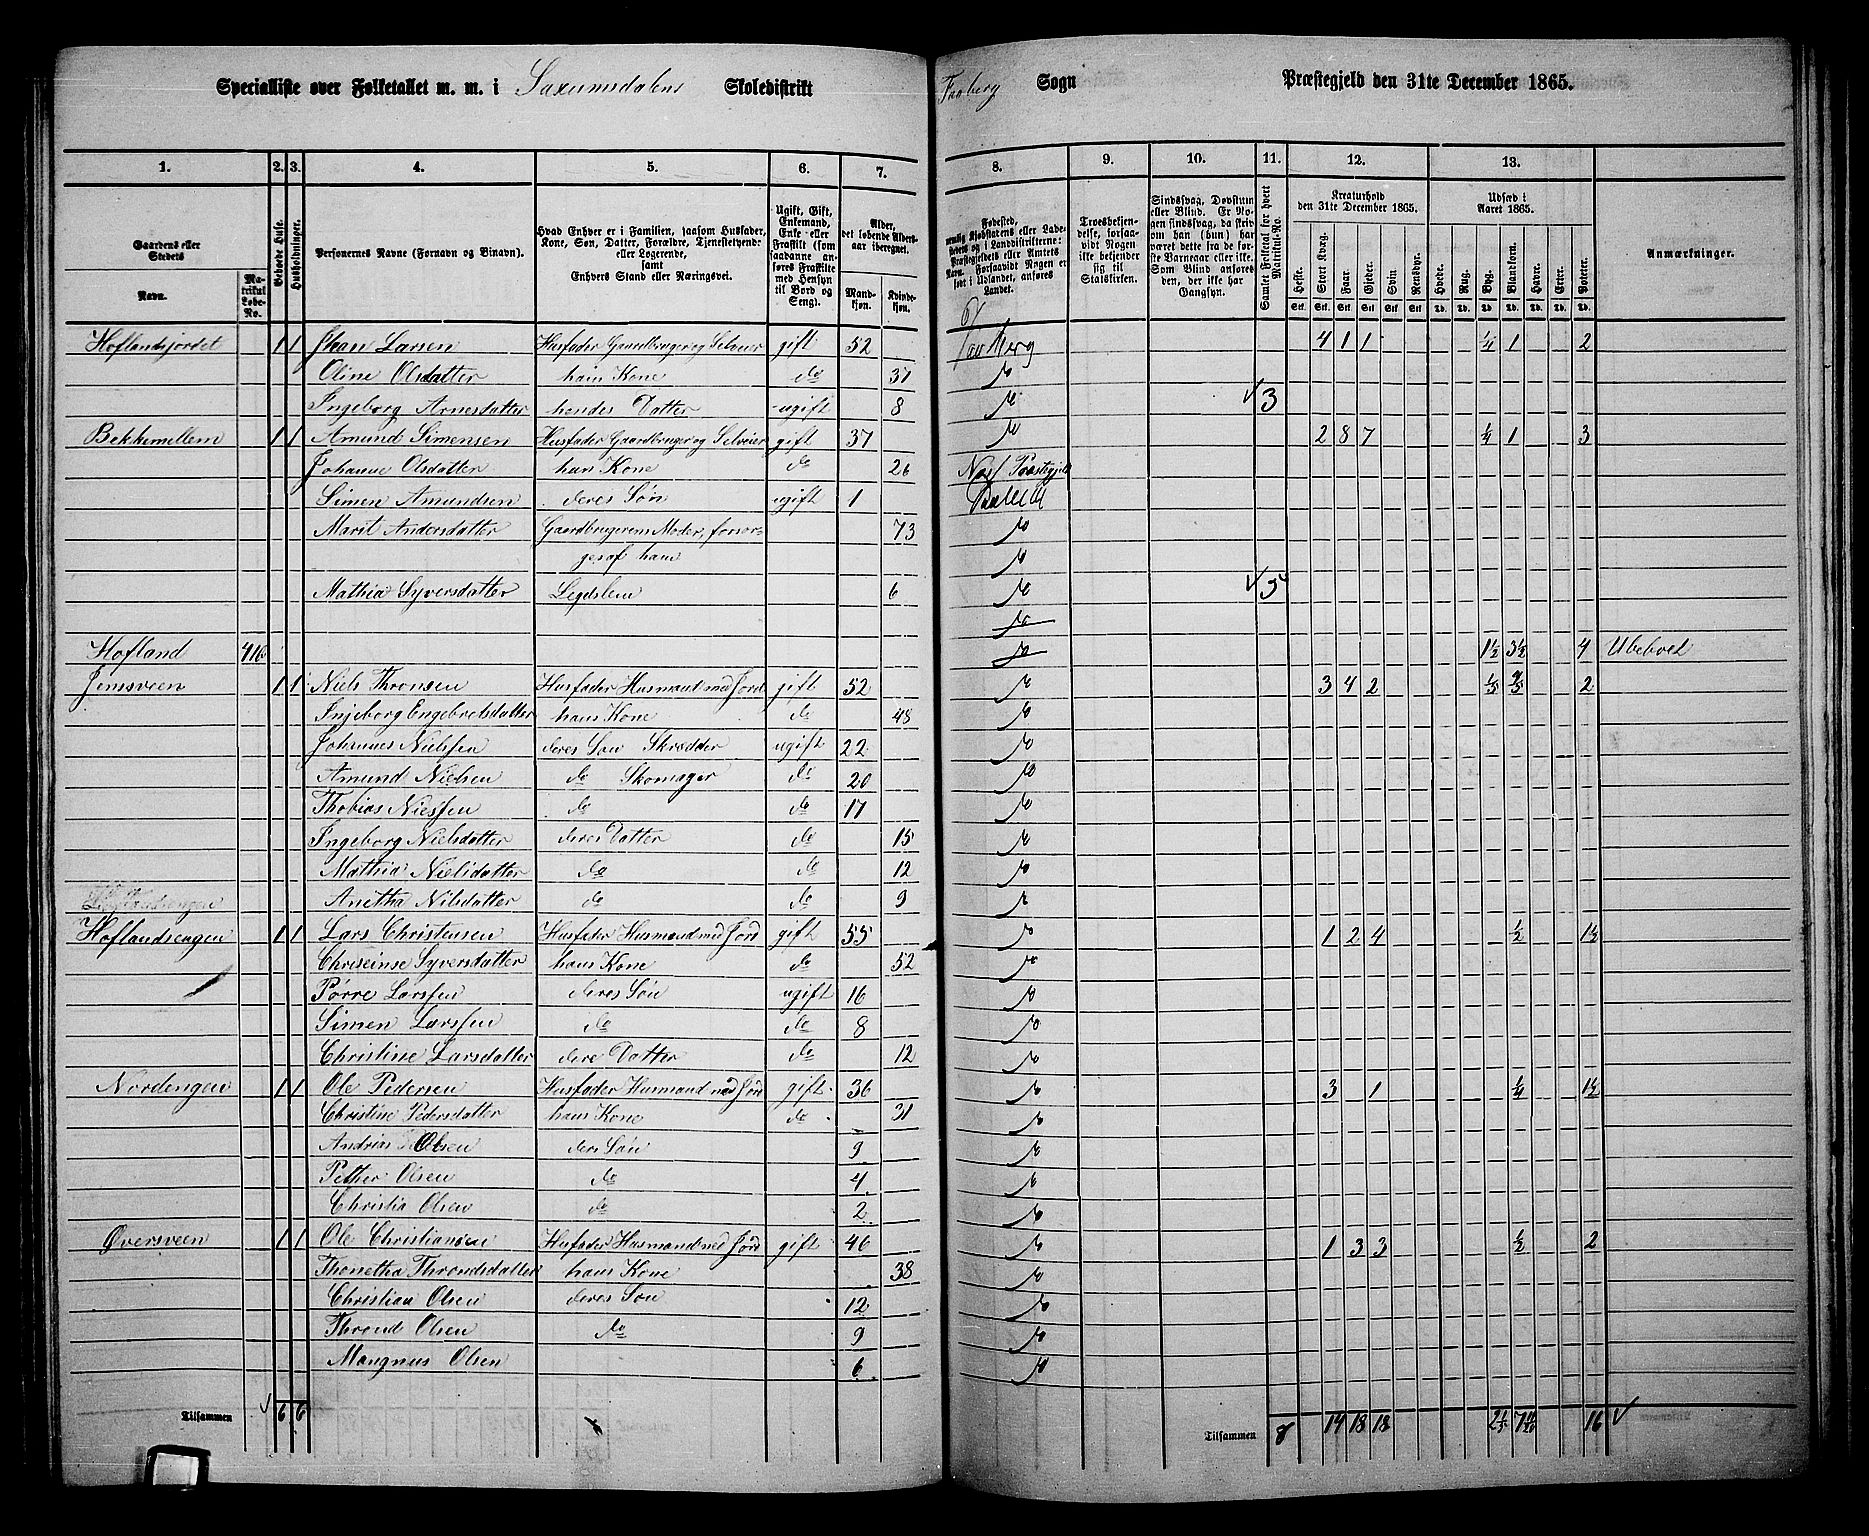 Specialliste over Folketallet m. m. i Saxumsdalens Skoledistrikt Faaberg Sogn Præstegjeld den 31te December 1865.
1. 2. 3. 4. 5. 6. 7. 8. 9. 10. 11. 12. 13.
Gaardens eller Stedets Navn.
Matrikul Løbe-No.
Beboede Huse.
Husholdninger.
Personernes Navne (Fornavn og Binavn).
Hvad Enhver er i Familien, saasom Husfader, Kone, Søn, Datter, Forældre, Tjenestetyende eller Logerende, samt Enhvers Stand eller Næringsvei.
Ugift, Gift, Enkemand, Enke eller Fraskilt (som saadanne anføres Fraskilte med Hensyn til Bord og Seng).
Alder, det løbende Aldersaar iberegnet.
Mandkjøn. Kvindekjøn.
Troesbekjendelse, forsaavidt Nogen ikke bekjender sig til Statskirken.
Sindssvag, Døvstum eller Blind.
Samlet Folketal for hvert Matrikul-No.
Kreaturhold den 31te December 1865.
Heste. Stort Kvæg. Faar. Gjeder. Svin. Rensdyr.
Udsæd i Aaret 1865.
Hvede. Rug. Byg. Blandkorn. Havre. Erter. Poteter.
Anmærkninger.
Hoflandsjordet 1 1 Johan Larsen Husfader Gaardbruger og Selveier gift 52 Faaberg 4 1 1 ¼ 1 2
Oline Olsdatter hans Kone do 37
Ingeborg Arnesdatter hendes Datter ugift 8 3
Bekkemellem 1 1 Amund Simensen Husfader Gaardbruger og Selveier gift 37 2 8 7 ¼ 1 3
Johanne Olsdatter hans Kone do 26 Præstegjeld
Simen Amundsen deres Søn ugift 1
Marit Andersdatter Gaardbrugerens Moder, forsor- 73
ges af ham
Mathia Syversdatter Legdslem 6 5
Hofland 416 1½ 3½ 4 Ubeboet
Jensveen 1 1 Niels Thronsen Husfader Husmand med Jord gift 52 3 4 2 2
Injeborg Engebretsdatter hans Kone do 48
Johannes Nielsen deres Søn Skrædder ugift 22
Amund Nielsen do Skomager do 20
Thobias Nielsen do do 17
Ingeborg Nielsdatter deres Datter do 15
Mathia Nielsdatter do do 12
Anetha Nilsdatter do do 9
Hoflandsengen 1 1 Lars Christensen Husfader Husmand med Jord gift 55 1 2 4 ½ 1½
Syversdatter hans Kone do 52
Larsen deres Søn ugift 16
Simen Larsen do do 8
Christine Larsdatter dere Datter do 12
Nordengen 1 1 Ole Pedersen Husfader Husmand med Jord gift 36 3 1 ¼ 1½
Christine Pedersdatter hans Kone do 31
Andrias Olsen deres Søn 9
Pether Olsen do 4
Christia Olsen do 2
Øversveen 1 1 Ole Christiansen Husfader Husmand med Jord gift 46 1 3 3 ½ 2
Thonetha Throndsdatter hans Kone 38
Christian Olsen deres Søn 12
Thrond Olsen do 9
Mangnus Olsen 6
Tilsammen 6 6 Tilsammen 8 14 18 18 16